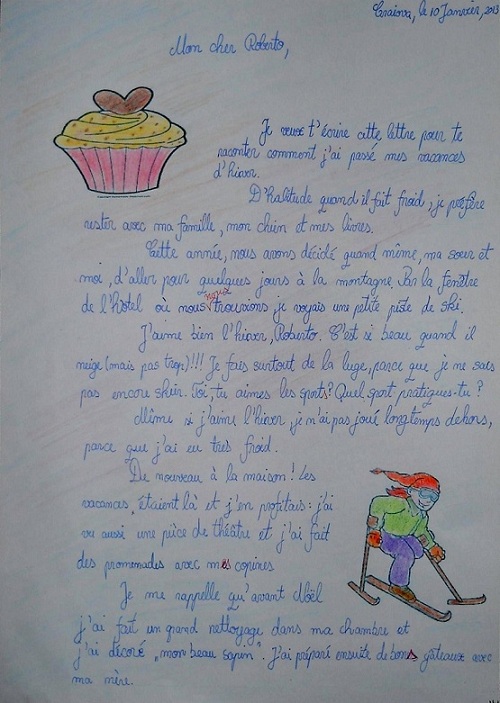 Craiova, le 10 Janvier, 2013
Mon cher Roberto,
Je veux t'écrire cette lettre pour te
raconter comment j'ai passé mes vacances
d'hiver.
D'habitude quand il fait froid, je préfère
rester avec ma famille, mon chien et mes livres.
Cette année, nous avons décidé quand même, ma sœur et
moi, d'aller pour quelques jours à la montagne. Par la fenêtre
de l'hôtel où nous nous trouvions je voyais une petite piste de ski.
J'aime bien l'hiver, Roberto. C'est si beau quand il
neige (mais pas trop)!!! Je fais surtout de la luge, parce que je ne sais
pas encore skier. Toi, tu aimes les sports? Quel sport pratiques-tu?
Même si j'aime l'hiver, je n'ai pas joué longtemps dehors,
parce que j'ai eu très froid.
De nouveau à la maison! Les
vacances étaient là et j'en profitais: j'ai
vu aussi une pièce de théâtre et j'ai fait
des promenades avec mes copines
Je me rappelle qu'avant Noël
j'ai fait un grand nettoyage dans ma chambre et
j'ai décoré „mon beau sapin". J'ai préparé ensuite de bons gâteaux avec
ma mère.